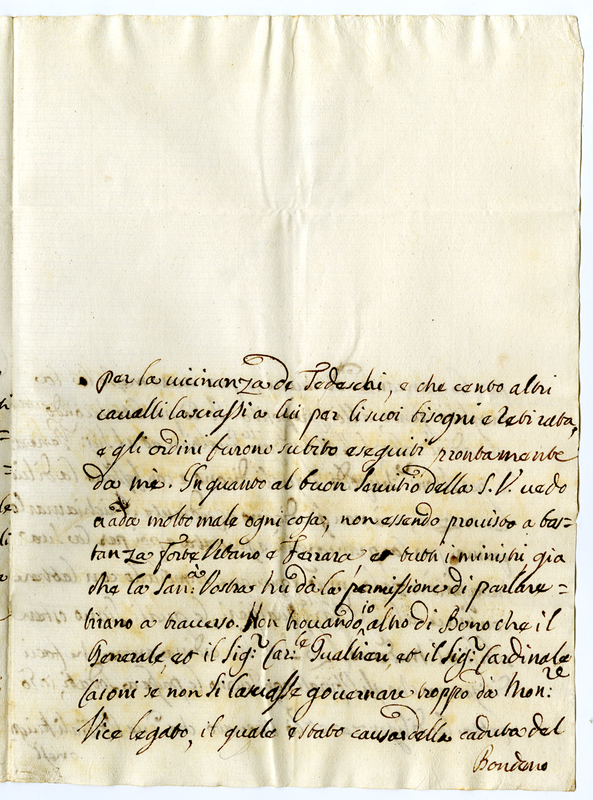 per la vicinanza de Tedeschi, e che cento altri
cavalli lasciassi a lui per li suoi bisogni e retirata,
e gli ordini furono subito eseguiti prontamente
da me. In quanto al buon servitio della S. V. vedo
anda molto male ogni cosa, non essendo provisto a bas=
tanza forte Urbano e Ferrara et tutti i ministri già
che la San.à Vostra mi dà la permissione di parlare =
tirano a traverso. Non trovando io altro di Bono che il
Generale, et il Sig.r Car.le Gualtieri, et il Sig.r Cardinale
Casoni se non si lasciasse governare troppo da Mon.re
Vice legato, il quale è stato causa della caduta del
Bondeno